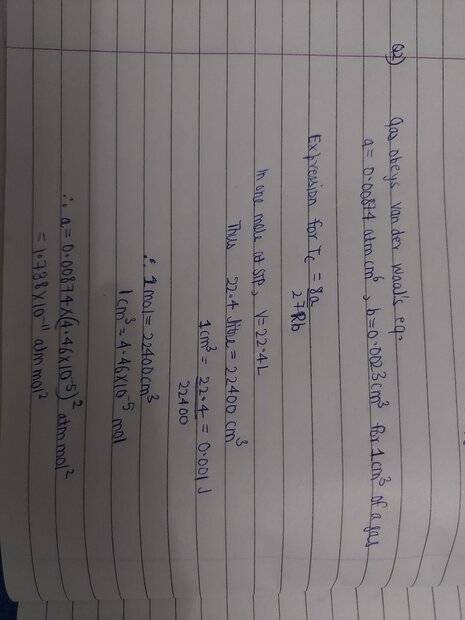 Q2) Gas obeys Van der Waal's eq.
a = 0.00874 atm cm⁶, b = 0.0023 cm³ for 1 cm³ of a gas
Expression for Tc = 8a / 27Rb
In one mole at STP, V = 22.4 L
Thus 22.4 litre = 22400 cm³
1 cm³ = 22.4 / 22400 = 0.001 J
∴ 1 mol = 22400 cm³
1 cm³ = 4.46 × 10⁻⁵ mol
∴ a = 0.00874 × (4.46 × 10⁻⁵)² atm mol²
= 1.738 × 10⁻¹¹ atm mol²